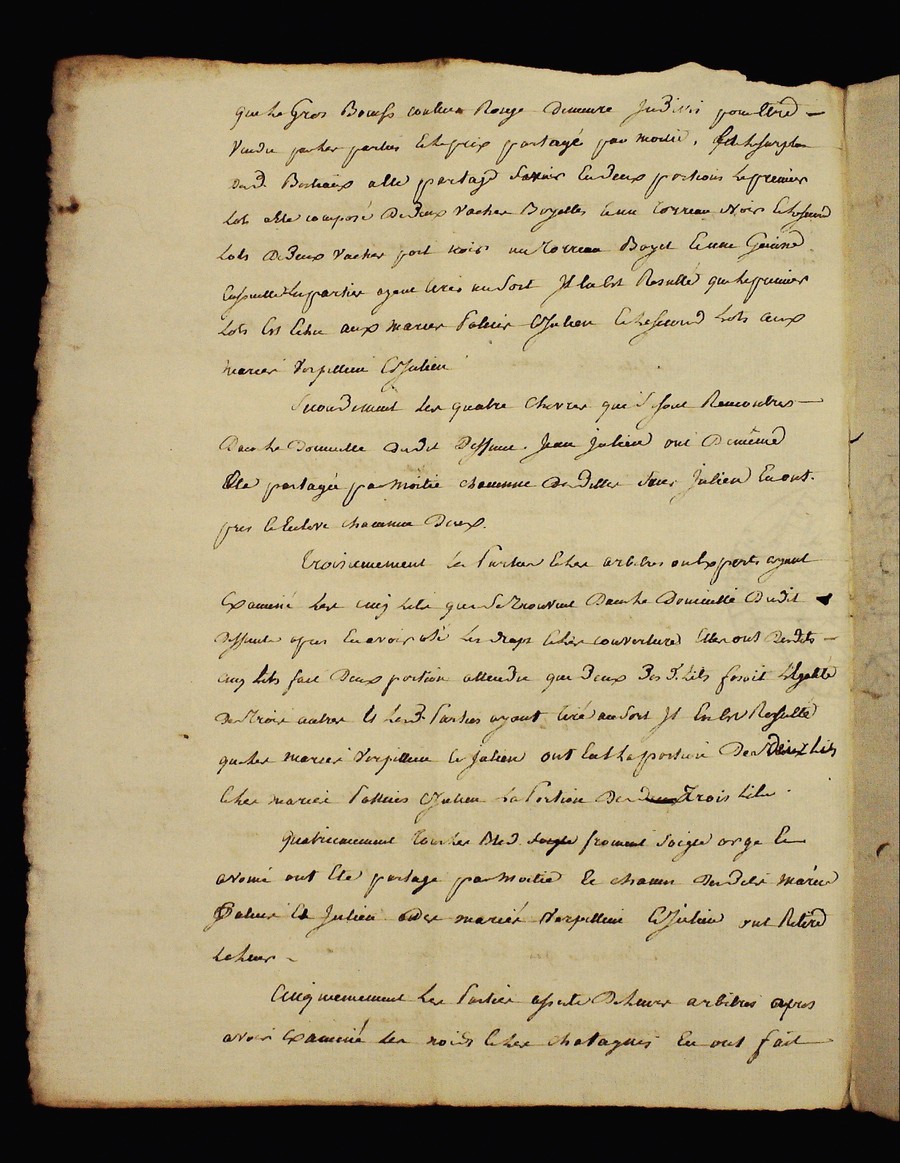 que le Gros Boeufs couleur Rouge demeure Indivis pour être
vendu par les parties et le prix partagé par moitié, Et le surplus
desd. Bestiaux a été partagé savoir En deux portions le premier
Lots a été composé De deux vaches Boyelles et un torreau Noir et le second
Lots De deux vaches poil noir un torreau Boyet et une Genisse
Ensuitte les parties ayant tirés au sort Il en Est Resulté que le premier
Lots Est échu aux mariés Et Julien et le second Lots aux
mariés Et Julien
Secondement les quatre chevres qui se sont Rencontrés
Dans le Domicille dudit Deffunt Jean Julien ont De même
Eté partagée par moitié chacunne des dittes Soeur Julien En ont
pris et Enlevé chacunne Deux.
Troisiemement Les Parties et les arbitres ou Experts ayant
Examiné les cinq Lits que se trouvent Dans le Domicille Dudit
Deffunt apres En avoir oté les draps et les couverture Elles ont Desdits
cinq Lits fait Deux portion attendu que deux Des d. Lits fesoit l'Egalité
Des trois autres Et les d. Parties ayant tiré au sort Il En Est Resulté
que les mariés Et Julien ont Eut la portion Des deux Lits
et les mariés Et Julien La Portion Des trois Lits.
Quatriemement tous les Bled froment soigle orge Et
avoine ont Eté partagé par moitié Et chacun Desdits mariés
Et Julien et des mariés Et Julien ont Retiré
la leur
Cinquiemement les Parties assisté De leurs arbitres apres
avoir Examiné les noix et les chatagnes En ont fait